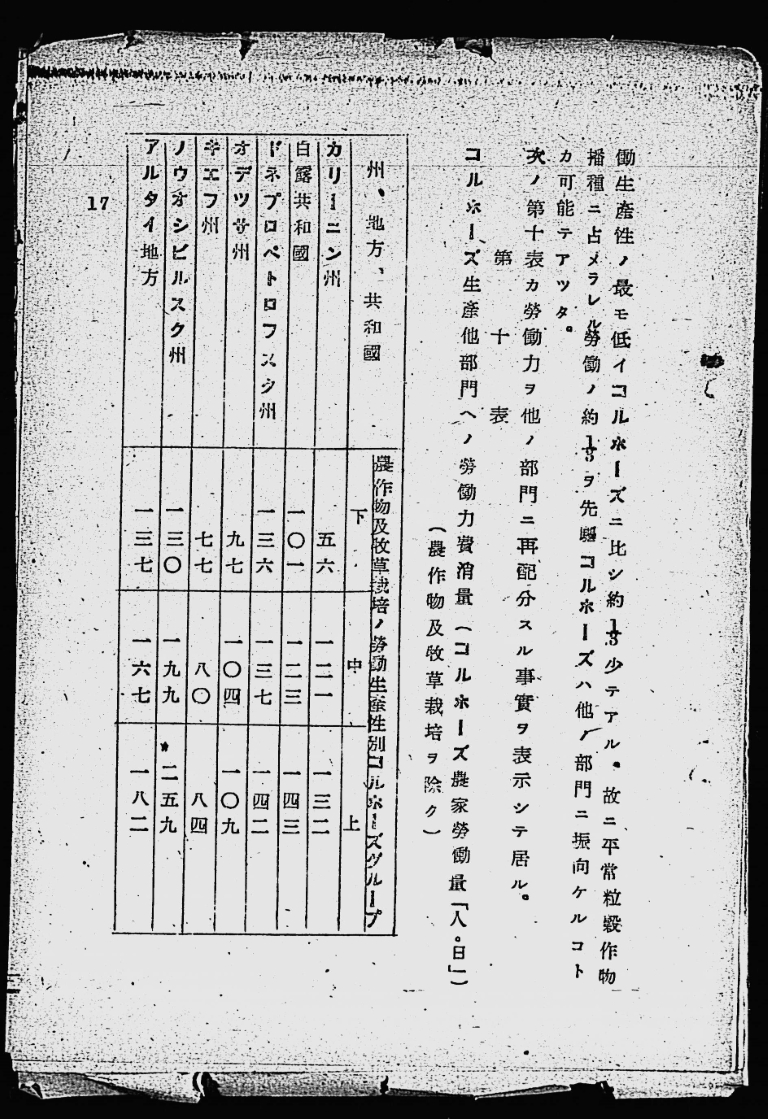 働生産性ノ最モ低イコルホーズニ比シ約1/3少テアル。故ニ平常粒穀作物
播種ニ占メラレル勞働ノ約1/3ヲ先驅コルホーズハ他ノ部門ニ振向ケルコト
カ可能テアツタ。
次ノ第十表カ勞働力ヲ他ノ部門ニ再配分スル事實ヲ表示シテ居ル。
第十表
コルホーズ生産他部門ヘノ勞働力費消量（コルホーズ農家勞働量「人。日」）
（農作物及牧草栽培ヲ除ク）
州、地方、共和國
農作物及牧草栽培ノ勞働生産性別コルホーズグループ
下 中 上
カリーニン州 五六 一二一 一三二
白露共和國 一〇一 一二三 一四三
ドネプロペトロフスク州 一三六 一三七 一四二
オデツサ州 九七 一〇四 一〇九
キエフ州 七七 八〇 八四
ノウオシビルスク州 一三〇 一九九 二五九
アルタイ地方 一三七 一六七 一八二
17